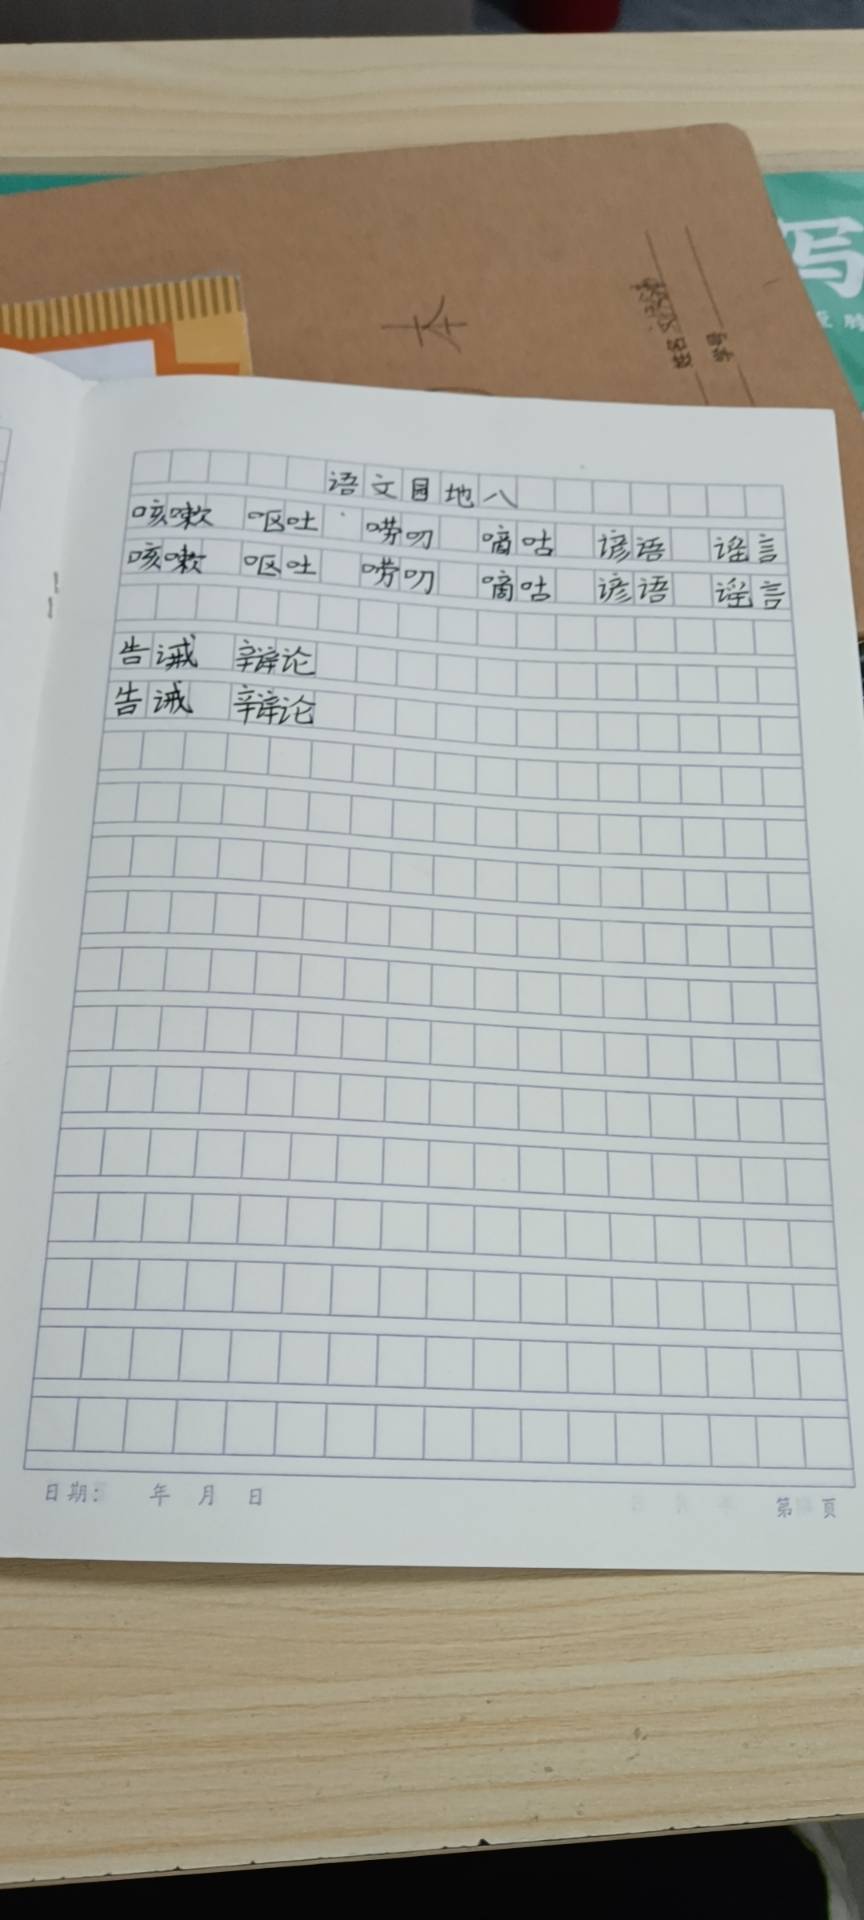 写
本
姓名
学号
语文园地八
咳嗽 呕吐 唠叨 嘀咕 谚语 谣言
咳嗽 呕吐 唠叨 嘀咕 谚语 谣言
告诫 辩论
告诫 辩论
日期： 年 月 日
第 页